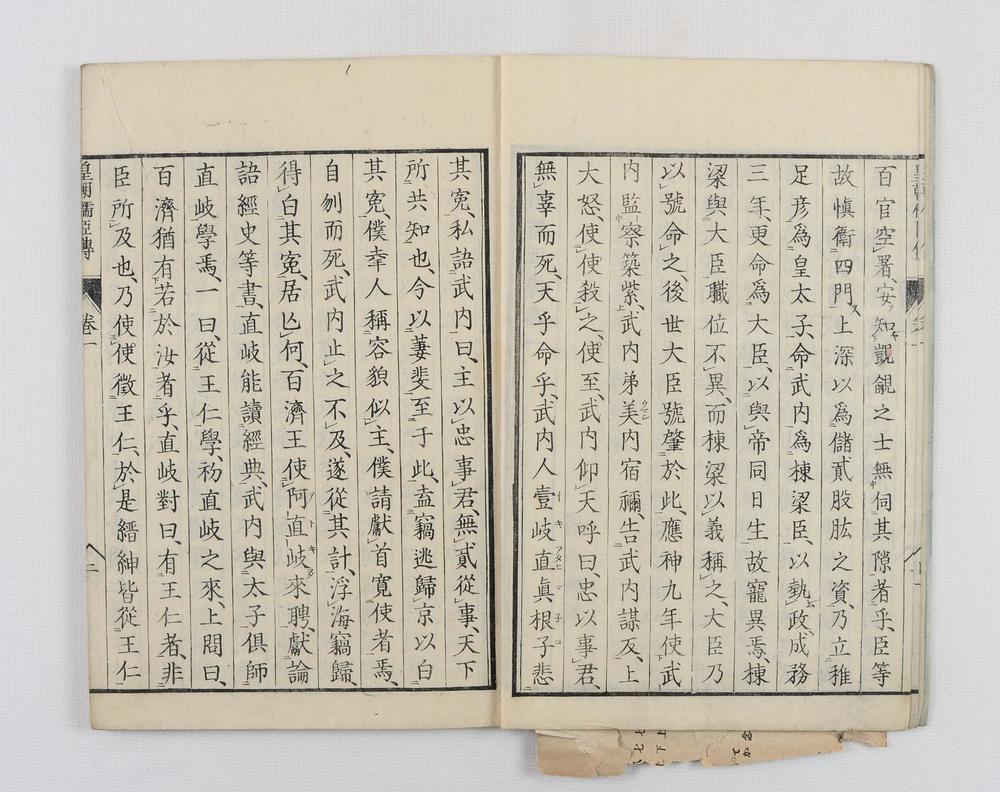 百官空署安知覬覦之士無伺其隙者乎、臣等
故愼衞四門、上深以爲儲貳股肱之資、乃立稚
足彦爲皇太子、命武内爲棟梁臣、以執政、成務
三年、更命爲大臣、以與帝同日生、故寵異焉、棟
梁與大臣、職位不異、而棟梁以義稱之、大臣乃
以號命之、後世大臣號肇於此、應神九年、使武
内監察築紫、武内弟美内宿禰、告武内謀反、上
大怒、使使殺之、使至、武内仰天呼曰、忠以事君、
無辜而死、天乎命乎、武内人壹岐直眞根子悲
其寃、私語武内曰、主以忠事君、無貳從事、天下
所共知也、今以萋斐至于此、盍竊逃歸京以白
其寃、僕幸人稱容貌似主、僕請獻首寛使者焉、
自刎而死、武内止之不及、遂從其計、浮海竊歸、
得白其寃、居亾何、百濟王使阿直岐來聘、獻論
語經史等書、直岐能讀經典、武内與太子俱師
直岐學焉、一曰、從王仁學、初直岐之來、上問曰、
百濟猶有若於汝者乎、直岐對曰、有王仁者、非
臣所及也、乃使使徴王仁、於是縉紳皆從王仁
皇朝儒臣傳 卷一 二